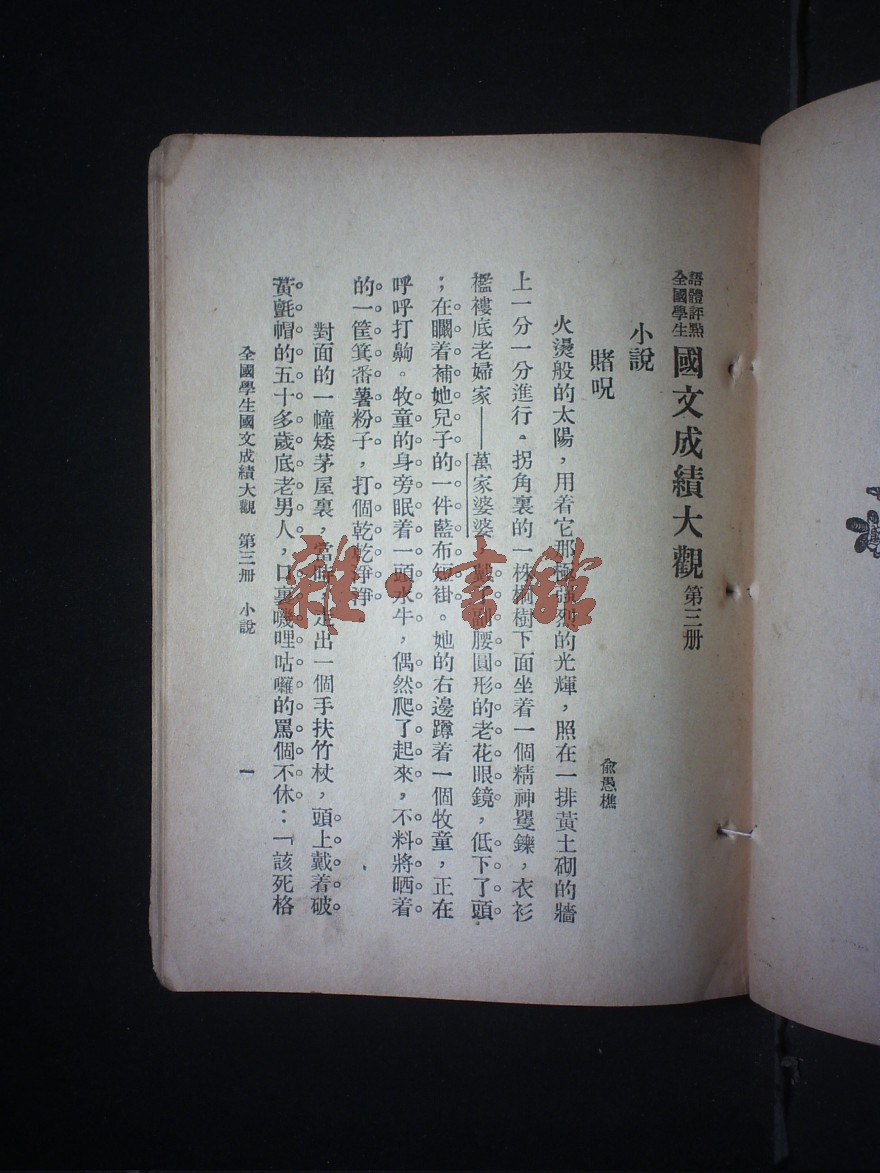 語體評點
全國學生
國文成績大觀 第三册
小說
賭呪
俞愚樵
火燙般的太陽，用着它那極强烈的光輝，照在一排黃土砌的牆
上一分一分進行。拐角裏的一株樹下面坐着一個精神矍鑠，衣衫
襤褸底老婦家——萬家婆婆，腰圓形的老花眼鏡，低下了頭
；在矙着補她兒子的一件藍布短褂。她的右邊蹲着一個牧童，正在
呼呼打齁。牧童的身旁眠着一頭水牛，偶然爬了起來，不料將晒着
的一筐箕番薯粉子，打個乾乾淨淨。
對面的一幢矮茅屋裏，當時走出一個手扶竹杖，頭上戴着破
黃氈帽的五十多歲底老男人，口裏嘰哩咕囉的罵個不休：「該死格
全國學生國文成績大觀 第三册 小說 一
雜·書館